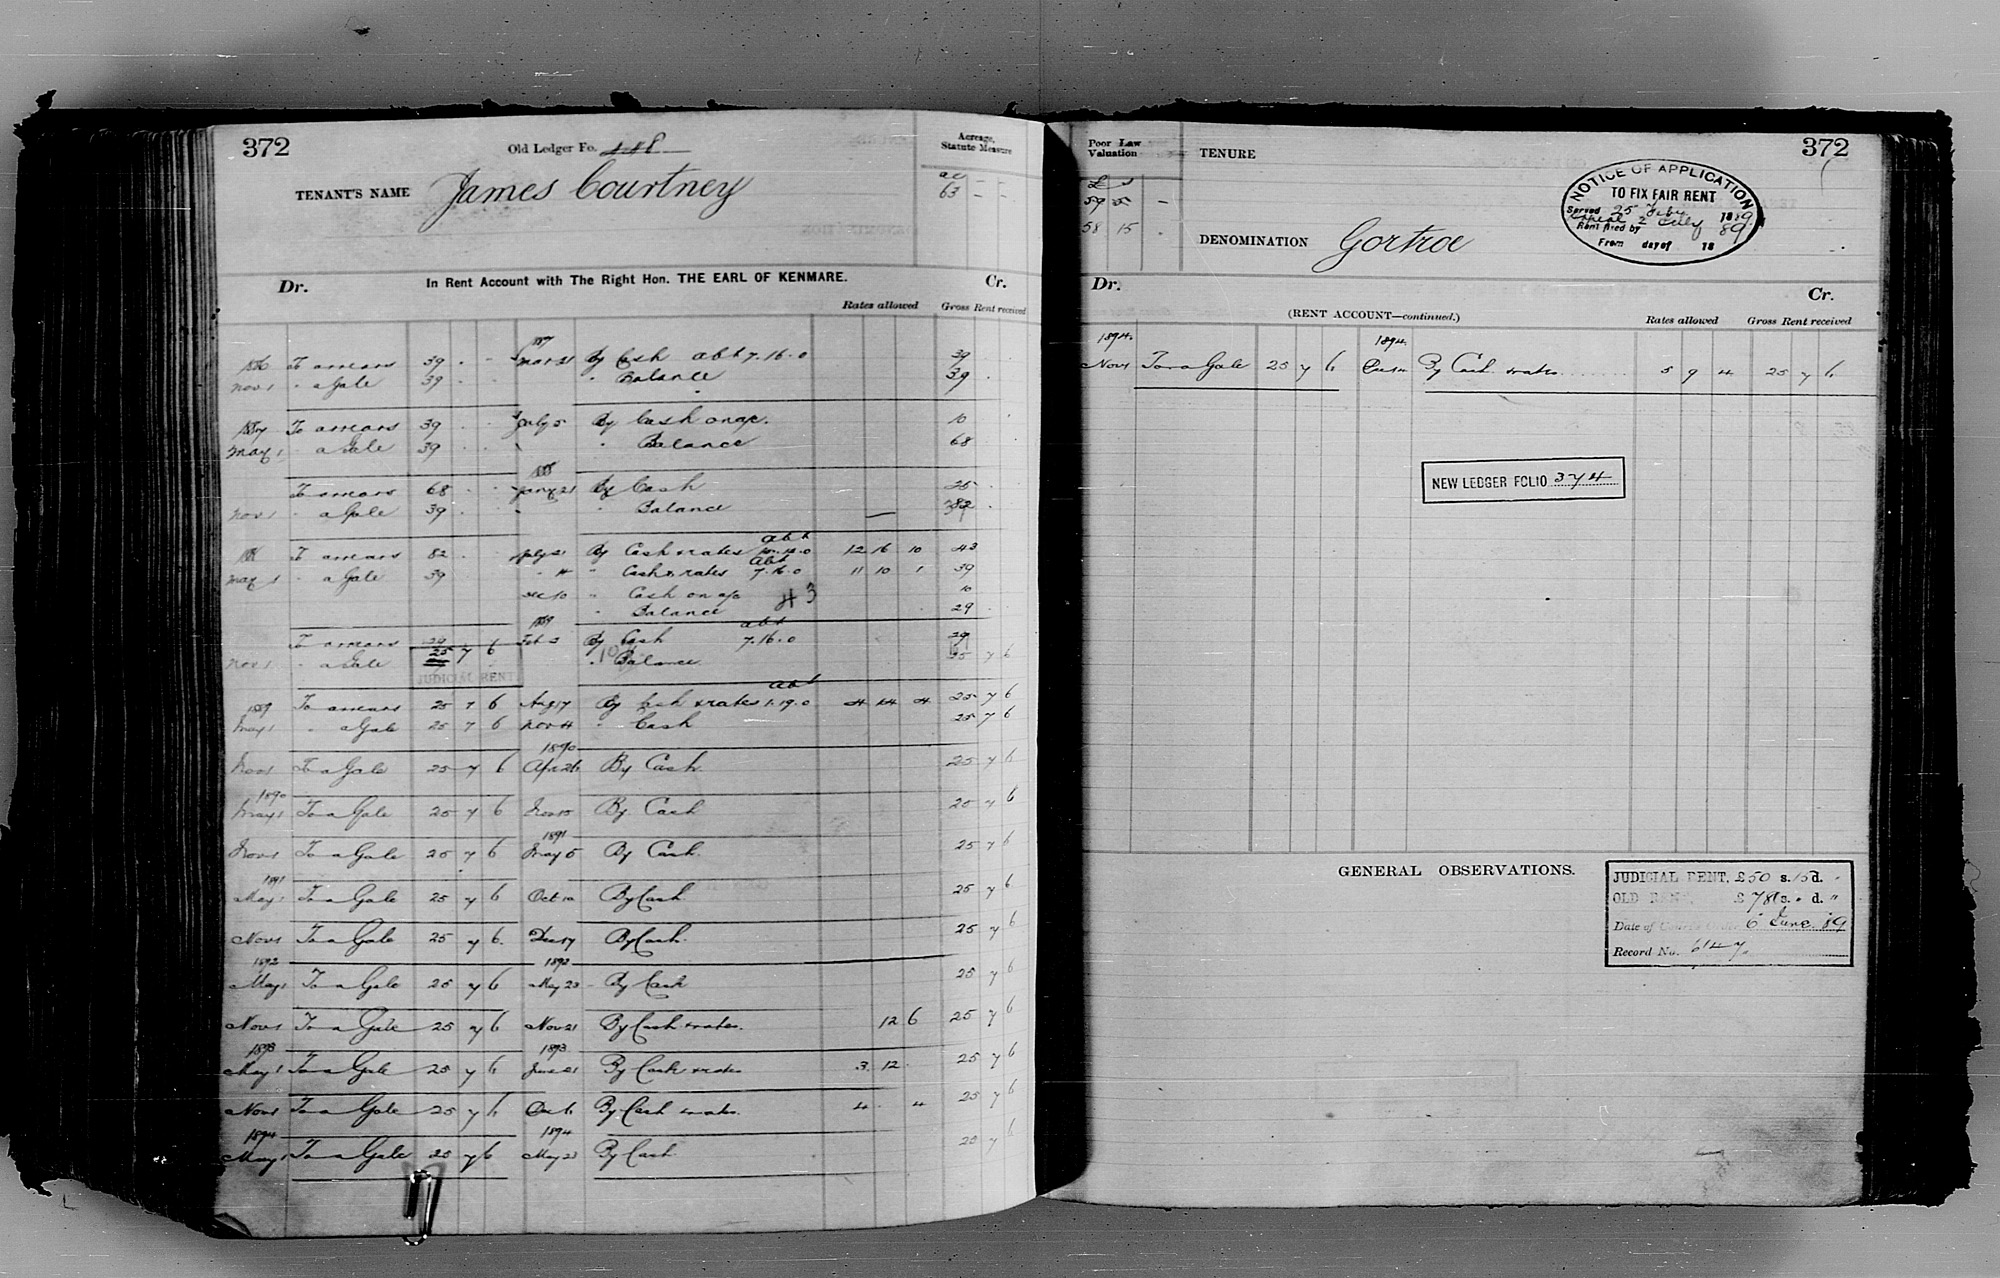 372
Old Ledger Fo. 448
Acreage, Statute Measure
TENANT'S NAME James Courtney
ac
63 - -
In Rent Account with The Right Hon. THE EARL OF KENMARE.
Dr. Cr.
Rates allowed Gross Rent received
1887
1886 To arrears 39 . - Mar 21 By Cash abt 7.16.0 39
Nov 1 " a Gale 39 . - " Balance 39 .
1887 To arrears 39 . . July 5 By Cash on a/c. 10
May 1 " a Gale 39 . . " Balance 68
1888
To arrears 68 . . Jany 21 By Cash 25
Nov 1 " a Gale 39 . . " Balance 82
1888 To arrears 82 . July 21 By Cash & rates abt 12 16 10 43
May 1 " a Gale 39 " Cash & rates abt 7.16.0 11 10 1 39
Dec 10 " Cash on a/c 10
" Balance 43 29
1889
To arrears 29 Feb 2 By Cash abt 7.16.0 29
Nov 1 " a Gale 25 7 6 " Balance 25 7 6
JUDICIAL RENT
1889 To arrears 25 7 6 Aug 17 By Cash & rates abt 1.19.0 4 14 4 25 7 6
May 1 " a Gale 25 7 6 Nov 4 " Cash 25 7 6
1890
Nov 1 To a Gale 25 7 6 Apr 26 By Cash 25 7 6
1890
May 1 To a Gale 25 7 6 Nov 15 By Cash 25 7 6
1891
Nov 1 To a Gale 25 7 6 May 5 By Cash. 25 7 6
1891
May 1 To a Gale 25 7 6 Oct 10 By Cash 25 7 6
Nov 1 To a Gale 25 7 6. Dec 17 By Cash. 25 7 6
1892 1892
May 1 To a Gale 25 7 6 May 23 By Cash 25 7 6
Nov 1 To a Gale 25 7 6 Nov 21 By Cash & rates. 12 6 25 7 6
1893 1893
May 1 To a Gale 25 7 6 June 21 By Cash & rates 3. 12 . 25 7 6
Nov 1 To a Gale 25 7 6 Dec 6 By Cash & rates. 4 . 4 25 7 6
1894 1894
May 1 To a Gale 25 7 6 May 23 By Cash 25 7 6
Poor Law Valuation
£ s
59 5 -
58 15 .
TENURE
372
NOTICE OF APPLICATION
TO FIX FAIR RENT
Served 25 Feby 1889
Appeal 2 July 89
Rent fixed by
From day of 18
DENOMINATION Gortroe
Dr. Cr.
(RENT ACCOUNT—continued.)
Rates allowed Gross Rent received
1894. 1894.
Nov 1 To a Gale 25 7 6 By Cash & rates 5 9 4 25 7 6
NEW LEDGER FOLIO 374
GENERAL OBSERVATIONS.
JUDICIAL RENT, £50 s.15 d. "
OLD RENT, £78 s. " d. "
Date of Court's Order 6 June 89
Record No. 647.